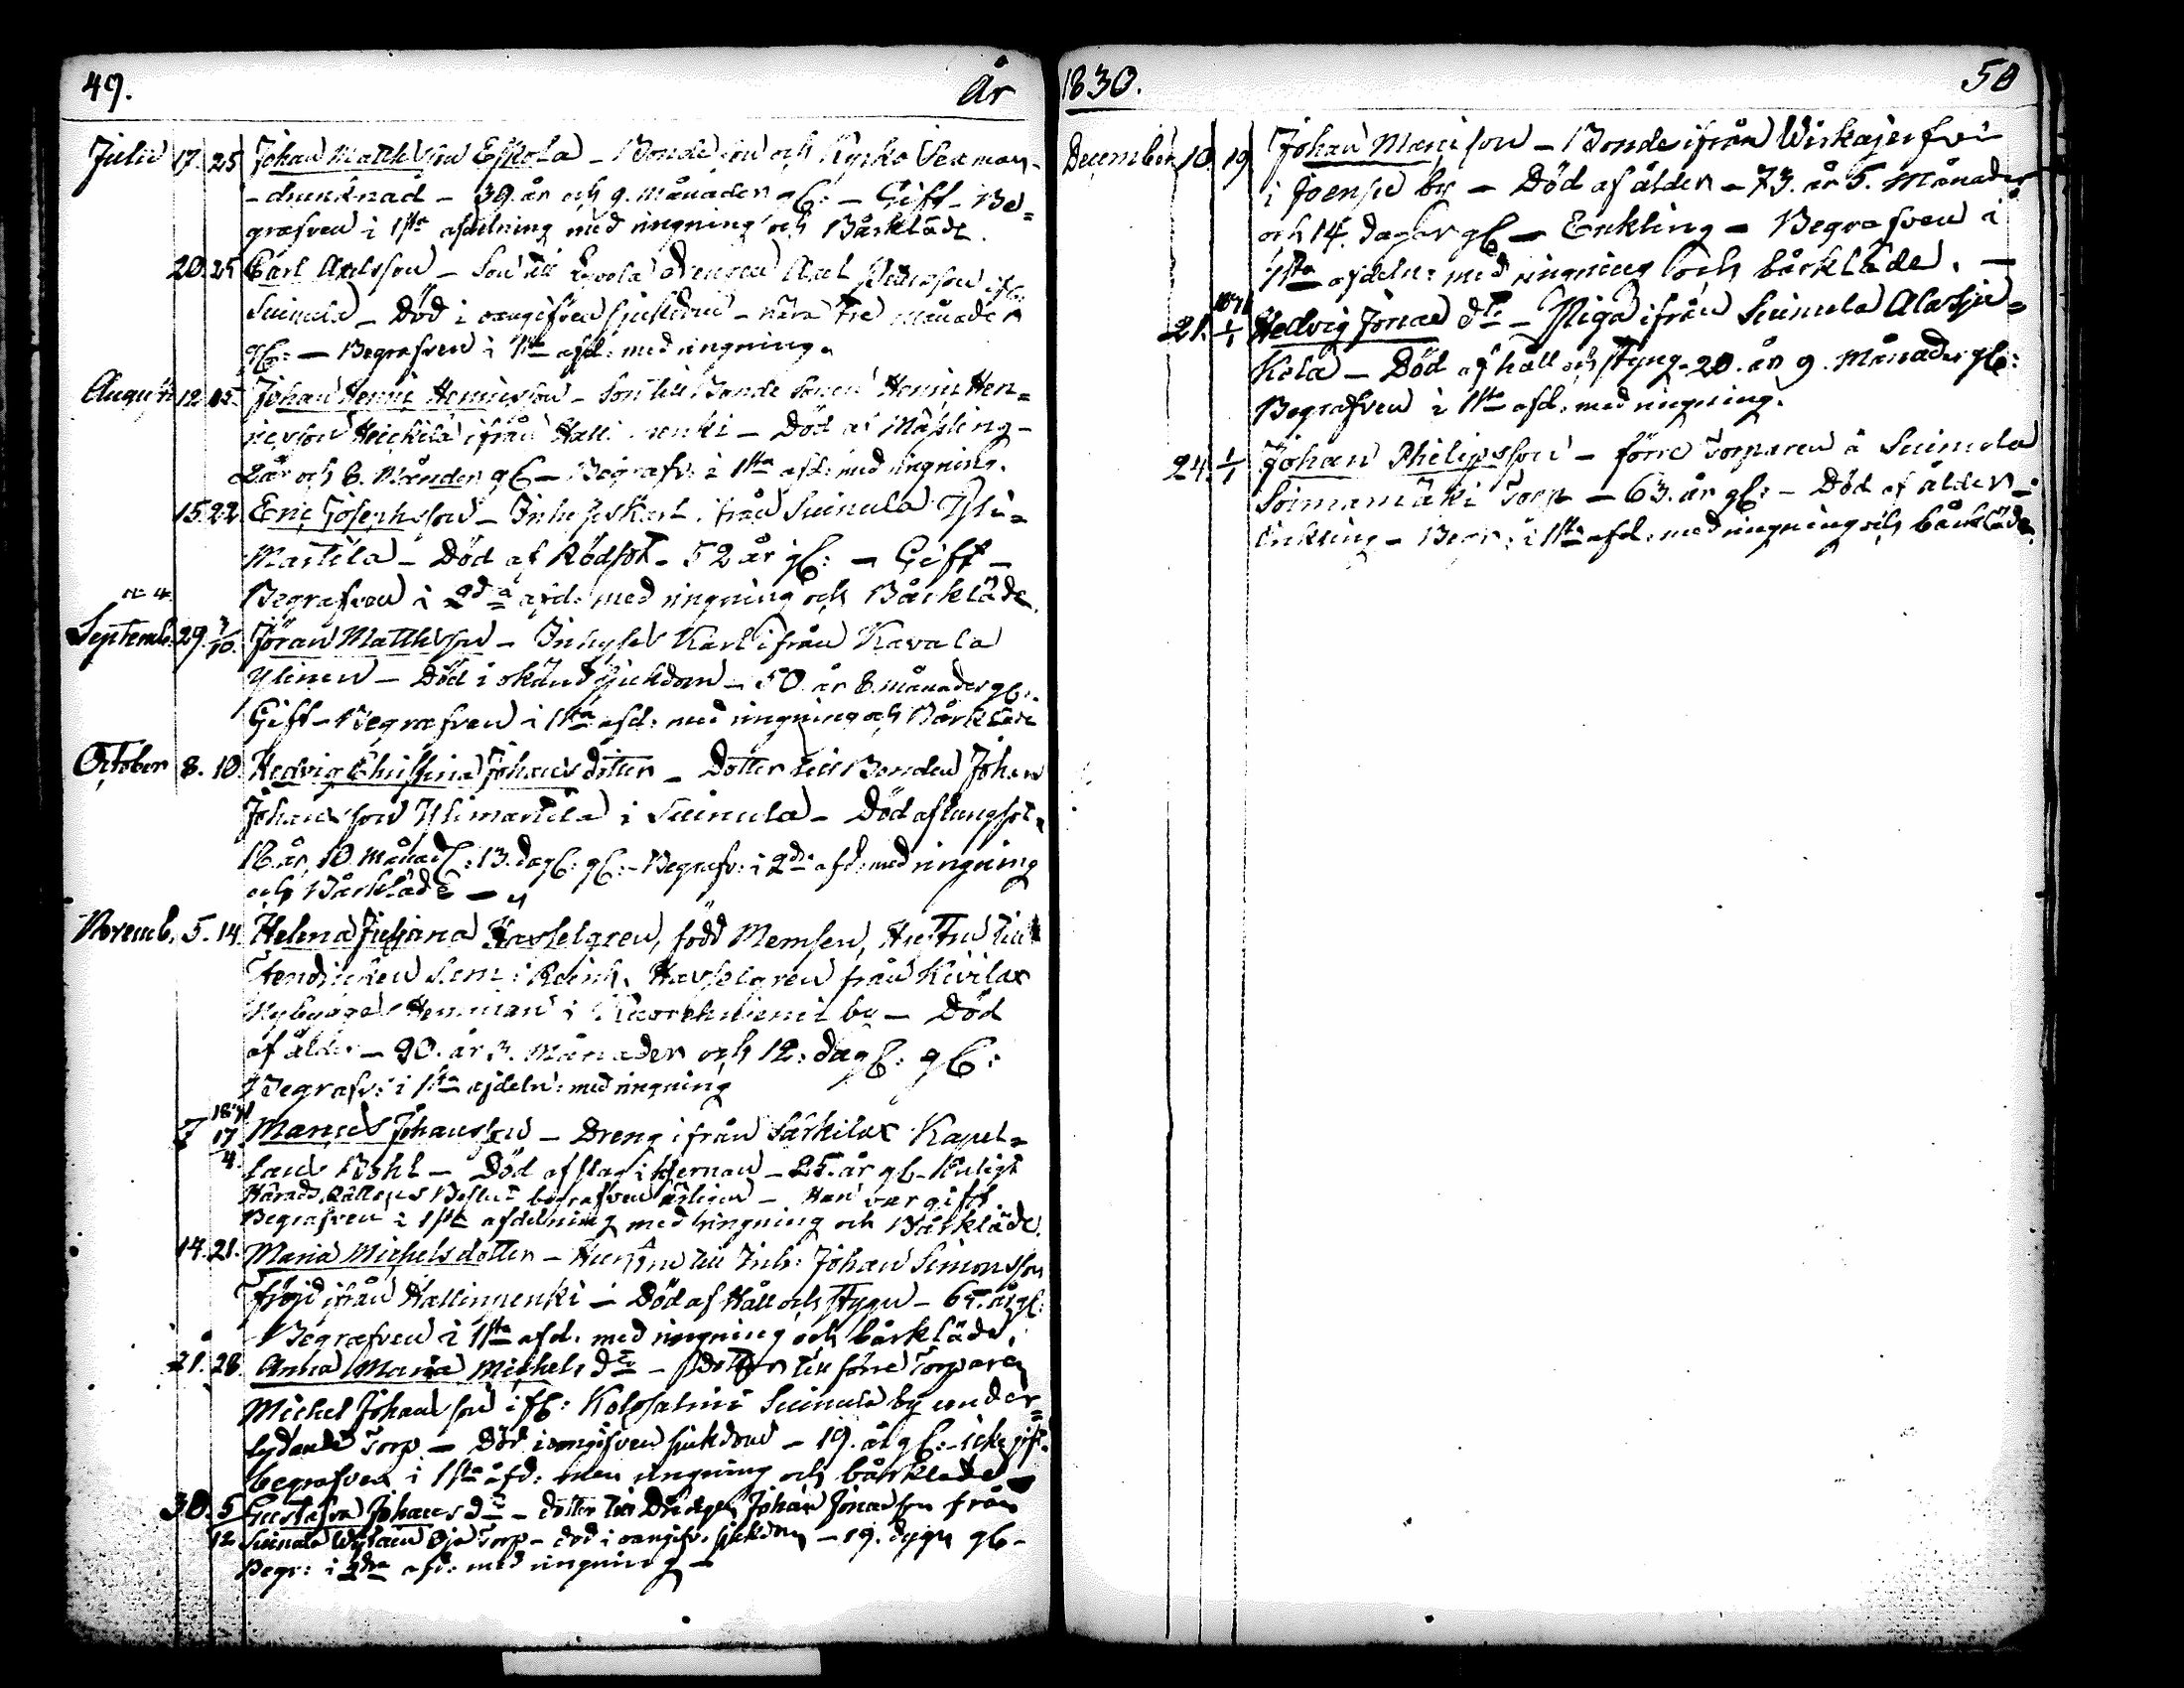 49. År
Julii 17. 25 Johan Matthsson Eskola - Bonde son och Kyrko Sexman -
- drunknad - 39. år och 9. månader gl: - Gift - Be=
grafven i 1sta afdelning med ringning och Bårkläde.
20. 25 Carl Axelsson - Son till Axel
Suinula - Död i oangifven sjukdom - nära tre månader
gl: - Begrafven i 1sta afd: med ringning.
Augusti 12. 15. Johan Henric Henricsson - Son till Bonde Sonen Henric Hen=
ricsson Heickilä ifrån - Död af Mässling -
2 år och 6. Månader gl - Begrafv: i 1sta afd: med ringning.
15. 22. Eric Josephsson - Inhyses Karl ifrån Suinula Yli=
Martila - Död af Rödsot - 52 år gl: - Gift -
Begrafven i 2dra afd: med ringning och Bårkläde.
Septemb: 29. 3/10. Jöran Matthsson - Inhyses Karl ifrån Kavala
Ylinen - Död i okänd sjukdom - 50. år 8. månader gl:
Gift - Begrafven i 1sta afd: med ringning och Bårkläde
October 8. 10. Hedvig Christina Johansdotter - Dotter till Bonden Johan
Johansson Ylimartila i Suinula - Död af lungsot -
16. år, 10. Månad: 13. dag: gl: - Begrafv: i 2dra afd: med ringning
och Bårkläde -
Novemb. 5. 14. Helena Juliana Hasselgren, född Memsen, Hustru till
Fendricken Hasselgren från Kivilax
Nybygge Hemman i by - Död
af ålder - 90. år 3. Månader och 12: dag: gl:
Begrafv: i 1sta afdeln: med ringning
7 1831 17/4. Johansson - Dreng ifrån Särkilax Kapel=
lans Bohl - Död af slag i hjernan - 25. år gl - Enligt
Härads Rättens Beslut begrafven ärligen - Han var gift
Begrafven i 1sta afdelning med ringning och Bårkläde.
14. 21. Maria Michelsdotter - Hustru till Inh: Johan Simonsson
Fröjd ifrån Hallinpenki - Död af Håll och Stygn - 65. år gl:
Begrafven i 1sta afd: med ringning och bårkläde.
21. 28. Anna Maria Michels dtr - Dotter till förre Torparen
Michel Johansson ifr: Kolosalmi Suinula by under=
lydande Torp - Död i oangifven sjukdom - 19. år gl: - icke gift.
begrafven i 1sta afd: med ringning och bårkläde -
30. 5/12 Gustafva Johans dtr - dotter till Drengen Johan Jonasson från
Suinula Oja Torp - död i oangifv. sjukdom - 19. dygn gl -
Begr: i 2dra afd: med ringning -
1830. 50
December 10. 19 Johan - Bonde ifrån Wirkajerfvi
i Joensu by - Död af ålder - 73. år 5. Månader
och 14. dagar gl - Enkling - Begrafven i
1sta afdeln: med ringning och bårkläde. -
21. 1831 1/1 Hedvig Jonae dtr - Piga ifrån Suinula Alasju=
kola - Död af håll och styng - 20. år 9. Månader gl:
Begrafven i 1sta afd: med ringning.
24. 1/1 Johan Philipsson - förre Torparen å Suinula
Soinimäki Torp - 63. år gl: - Död af ålder -
Enkling - Begr: i 1sta afd: med ringning och bårkläde.